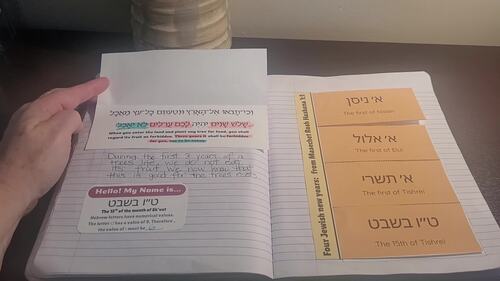 וכי־תבאו אל־הארץ ונטעתם כל־עץ מאכל
שלש שנים יהיה לכם ערלים לא יאכל
When you enter the land and plant any tree for food, you shall
regard its fruit as forbidden. Three years it shall be forbidden
for you, not to be eaten.
During the first 3 years of a
trees life, we do not eat
its fruit. We now know that
this is good for the trees
Hello! My Name is...
ט"ו בשבט
The 15th of the month of
Hebrew letters have numerical values.
The letter ט has a value of 9. Therefore,
the value of ו must be
Four Jewish new years: from Masechet Rosh Hashana 1:1
א' ניסן
The first of Nisan
א' אלול
The first of Elul
א' תשרי
The first of Tishrei
ט"ו בשבט
The 15th of Tishrei